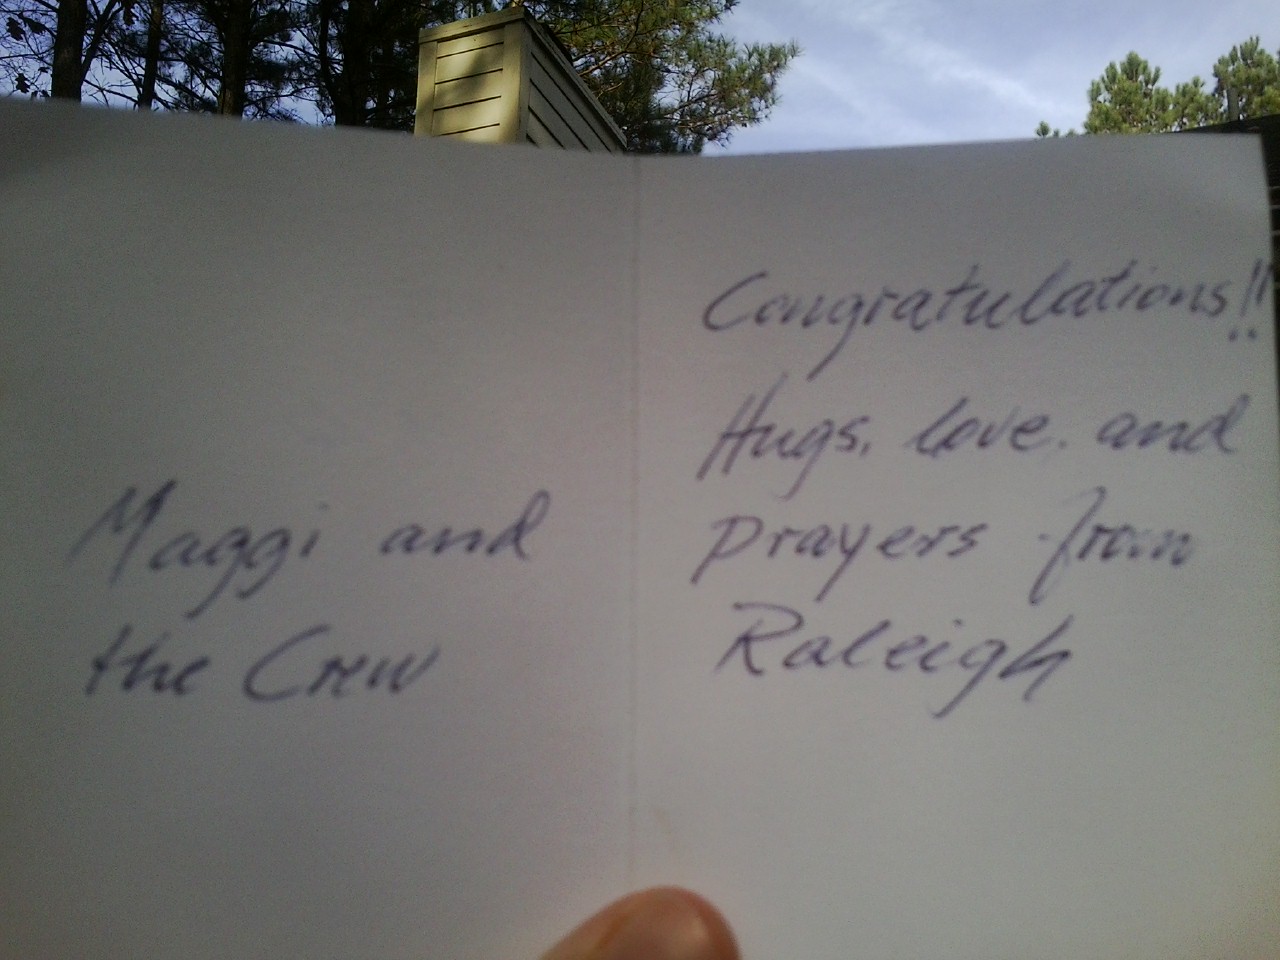 Maggi and
the Crew
Congratulations!!
Hugs, love, and
prayers from
Raleigh